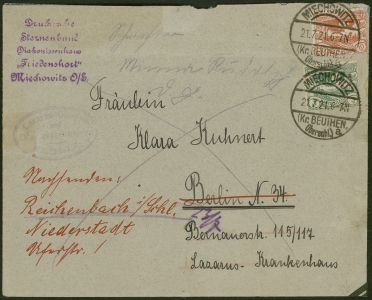 Drucksache
Sternenbund
Diakonissenhaus
„Friedenshort"
Miechowitz O/S.
Schwester
MIECHOWITZ
21.7.21.6-7N
(Kr. BEUTHEN
(Oberschl.) a
MIECHOWITZ
21.7.21.6-7N
(Kr. BEUTHEN
(Oberschl.) a
Fräulein
Klara Kuhnert
Berlin N. 34.
Bernauerstr. 115/117
Lazarus-Krankenhaus
Nachsenden:
Reichenbach i/Schl.
Niederstadt
Uferstr. 1